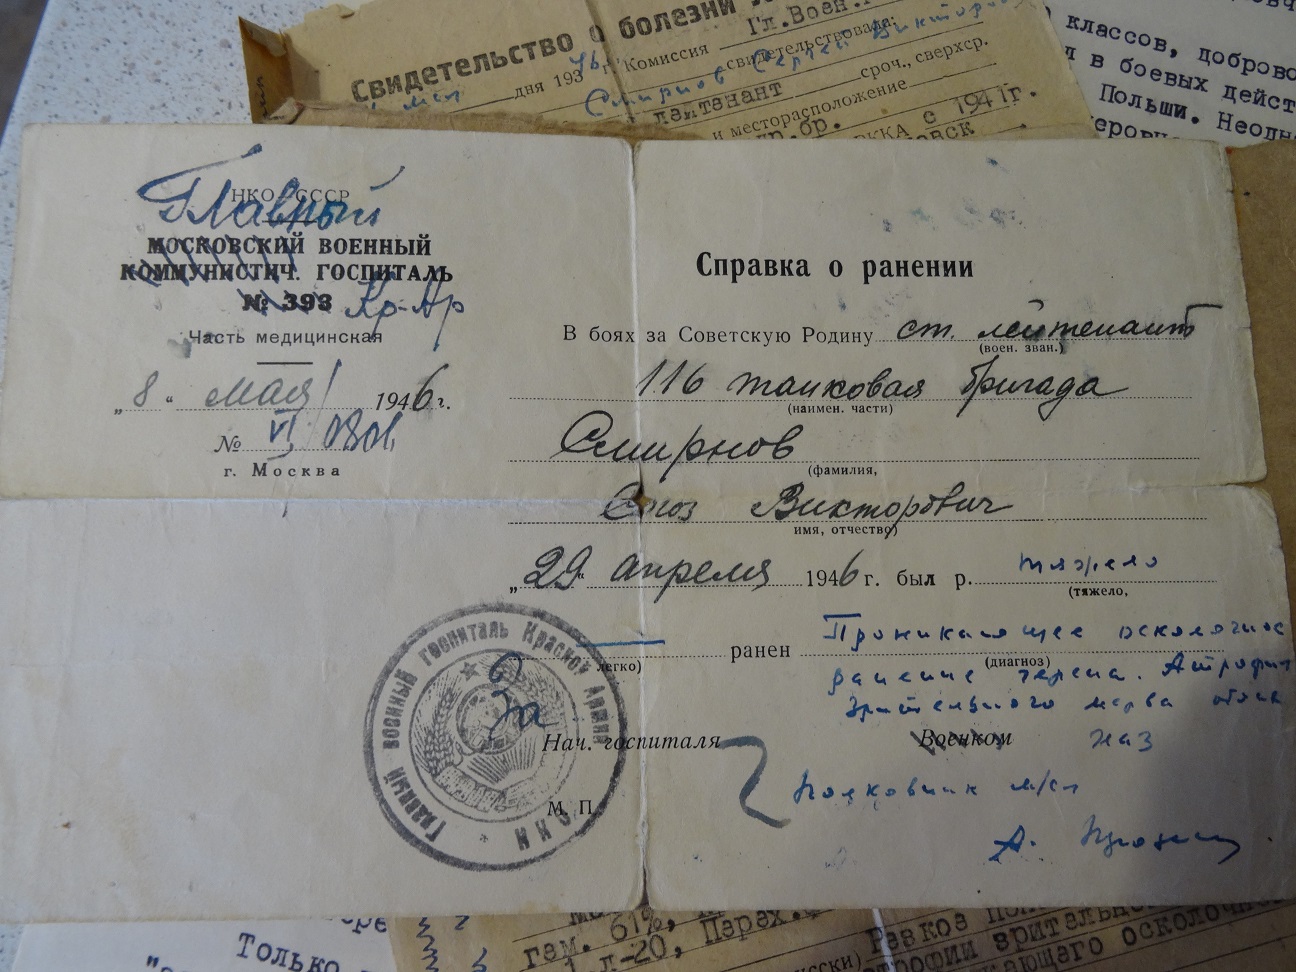 Свидетельство о болезни
Гл.Воен.
дня 193 г. Комиссия
свидетельствовала:
Смирнов Сергей Викторов
лейтенант
сроч., сверхср.
и месторасположение
РККА с 1941г.
классов, доброво
в боевых дейст
Польши. Неодн
НКО СССР
Главный
МОСКОВСКИЙ ВОЕННЫЙ
КОММУНИСТИЧ. ГОСПИТАЛЬ
№ 393 Кр-Ар
Часть медицинская
„8“ мая 1946 г.
№ VI/0801
г. Москва
Справка о ранении
В боях за Советскую Родину ст. лейтенант
(воен. зван.)
116 танковая бригада
(наимен. части)
Смирнов
(фамилия,
Союз Викторович
имя, отчество)
„29“ апреля 1946 г. был р. тяжело
(тяжело,
легко)
ранен Проникающее осколочное
(диагноз)
ранение черепа. Атрофия
зрительного нерва обоих
глаз
За
Нач. госпиталя
Военком
Полковник м/сл
М. П.
Главный военный госпиталь Красной Армии
Только
гем. 61%,
л-20, Перех.
Резкое
трофии зрительно
ающего осколочно